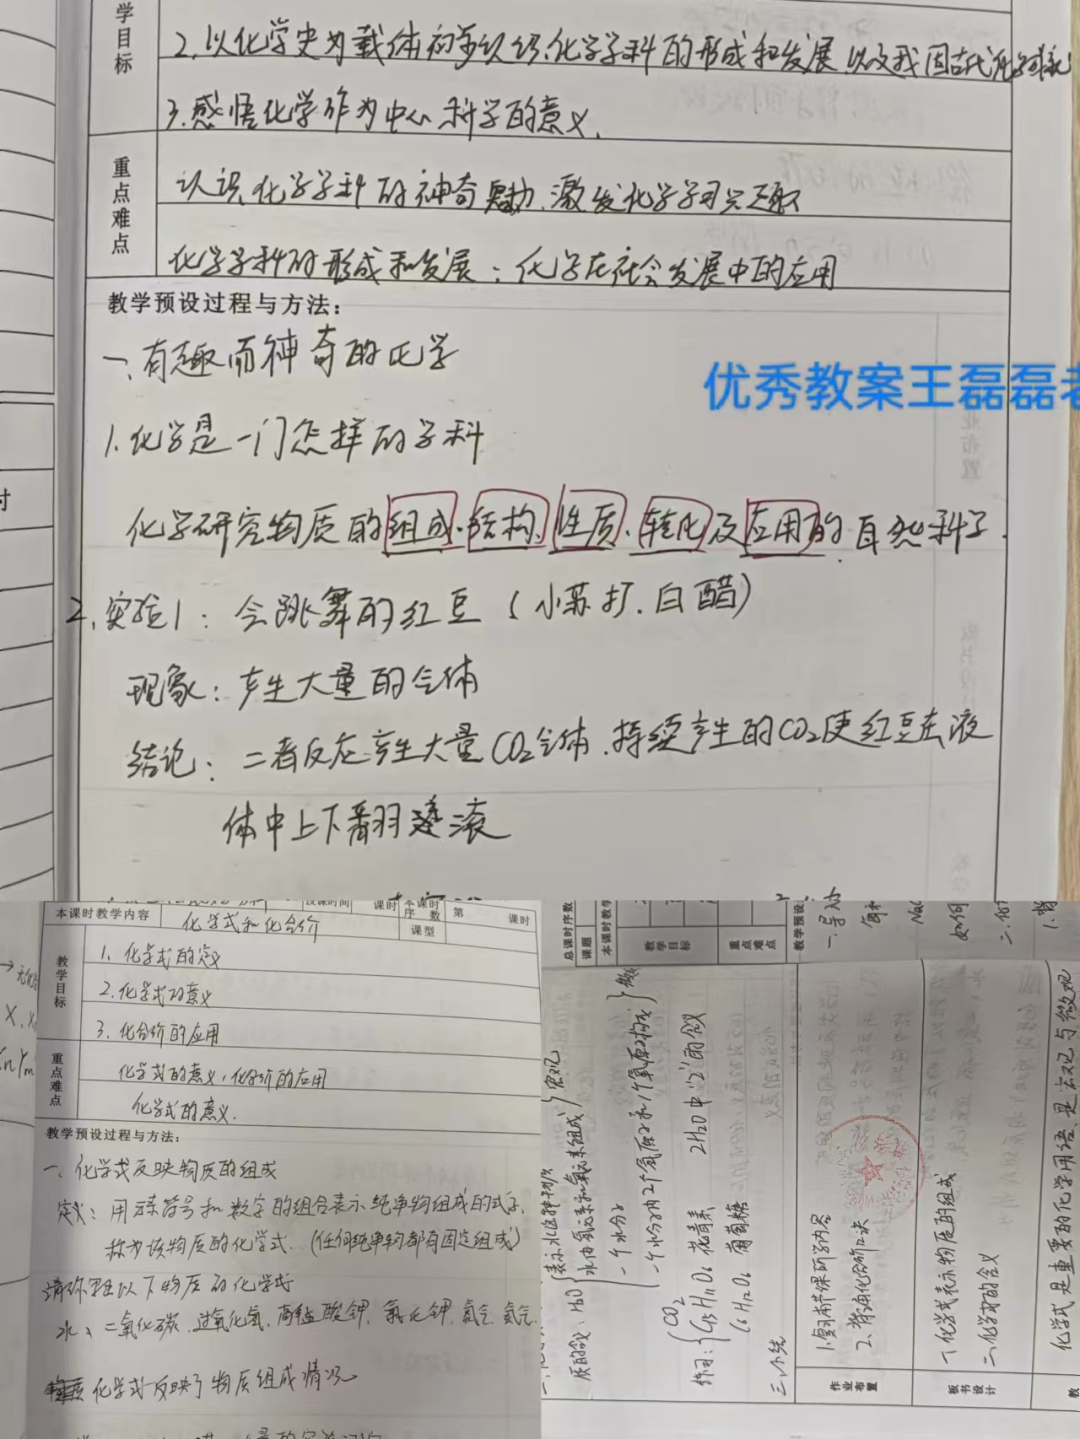 学
目
标
2.以化学史为载体初步认识化学学科的形成和发展 以及我国古代
3.感悟化学作为中心科学的意义.
重点难点
认识化学学科的神奇魅力,激发化学学习兴趣
化学学科的形成和发展;化学在社会发展中的应用
教学预设过程与方法:
优秀教案王磊磊老
一、有趣而神奇的化学
1.化学是一门怎样的学科
化学研究物质的组成.结构.性质.转化及应用的自然科学.
2.实验1: 会跳舞的红豆(小苏打.白醋)
现象: 产生大量的气体
结论: 二者反应产生大量CO₂气体.持续产生的CO₂使红豆在液
体中上下翻滚
本课时教学内容 化学式和化合价
授课时间 课时 本课时序数 第 课时
课型
教学目标
1、化学式的定义
2.化学式的意义
3.化合价的应用
重点难点
化学式的意义,化合价的应用
化学式的意义.
教学预设过程与方法:
一、化学式反映物质的组成
定义: 用元素符号和数字的组合表示纯净物组成的式子,
称为该物质的化学式.(任何纯净物都有固定组成)
请你写出以下物质的化学式
水、二氧化碳.过氧化氢.高锰酸钾.氯化钾.氮气.氦气.
化学式反映了物质组成情况
总课时序数
课题
本课时教学
教学目标
重点难点
教学预设
一.导入
如何
质的含义: H₂O
表示水这种物质
水由氢元素和氧元素组成
宏观
一个水分子
一个水分子由2个氢原子和1个氧原子构成
微
练习:
CO₂
C₁₅H₁₁O₆ 花青素
C₆H₁₂O₆ 葡萄糖
2H₂O中“2”的含义
三、小结
作业布置
1.复习本节课所学内容
2、背诵化合价口诀
板书设计
一、化学式表示物质的组成
二、化学式的含义
教
化学式是重要的化学用语,是宏观与微观